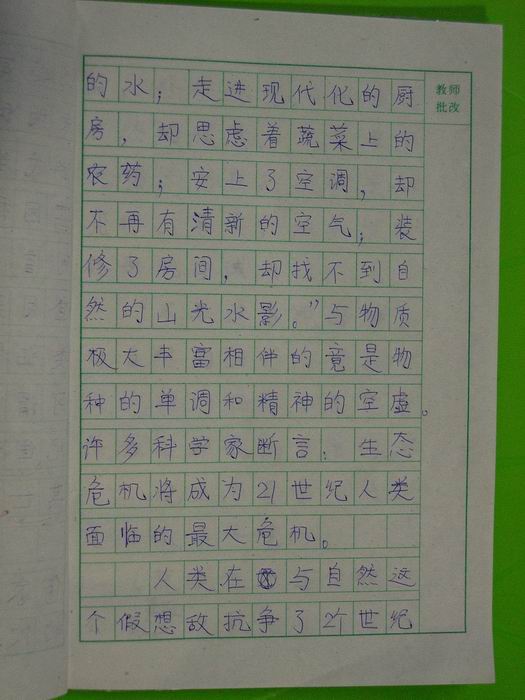 的水；走进现代化的厨
教师
批改
房，却思虑着蔬菜上的
农药；安上了空调，却
不再有清新的空气；装
修了房间，却找不到自
然的山光水影。”与物质
极大丰富相伴的竟是物
种的单调和精神的空虚。
许多科学家断言：生态
危机将成为21世纪人类
面临的最大危机。
人类在与自然这
个假想敌抗争了21个世纪